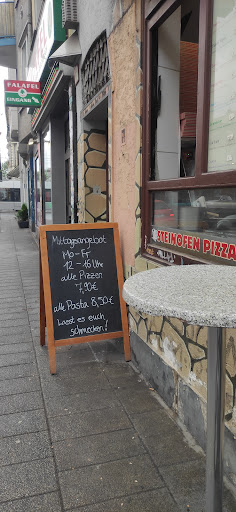 FALAFEL
EINGANG
Mittagsangebot
Mo - Fr
12 - 16 Uhr
alle Pizzen
7,90€
alle Pasta 8,50€
Lasst es euch
schmecken!
STEINOFEN PIZZA